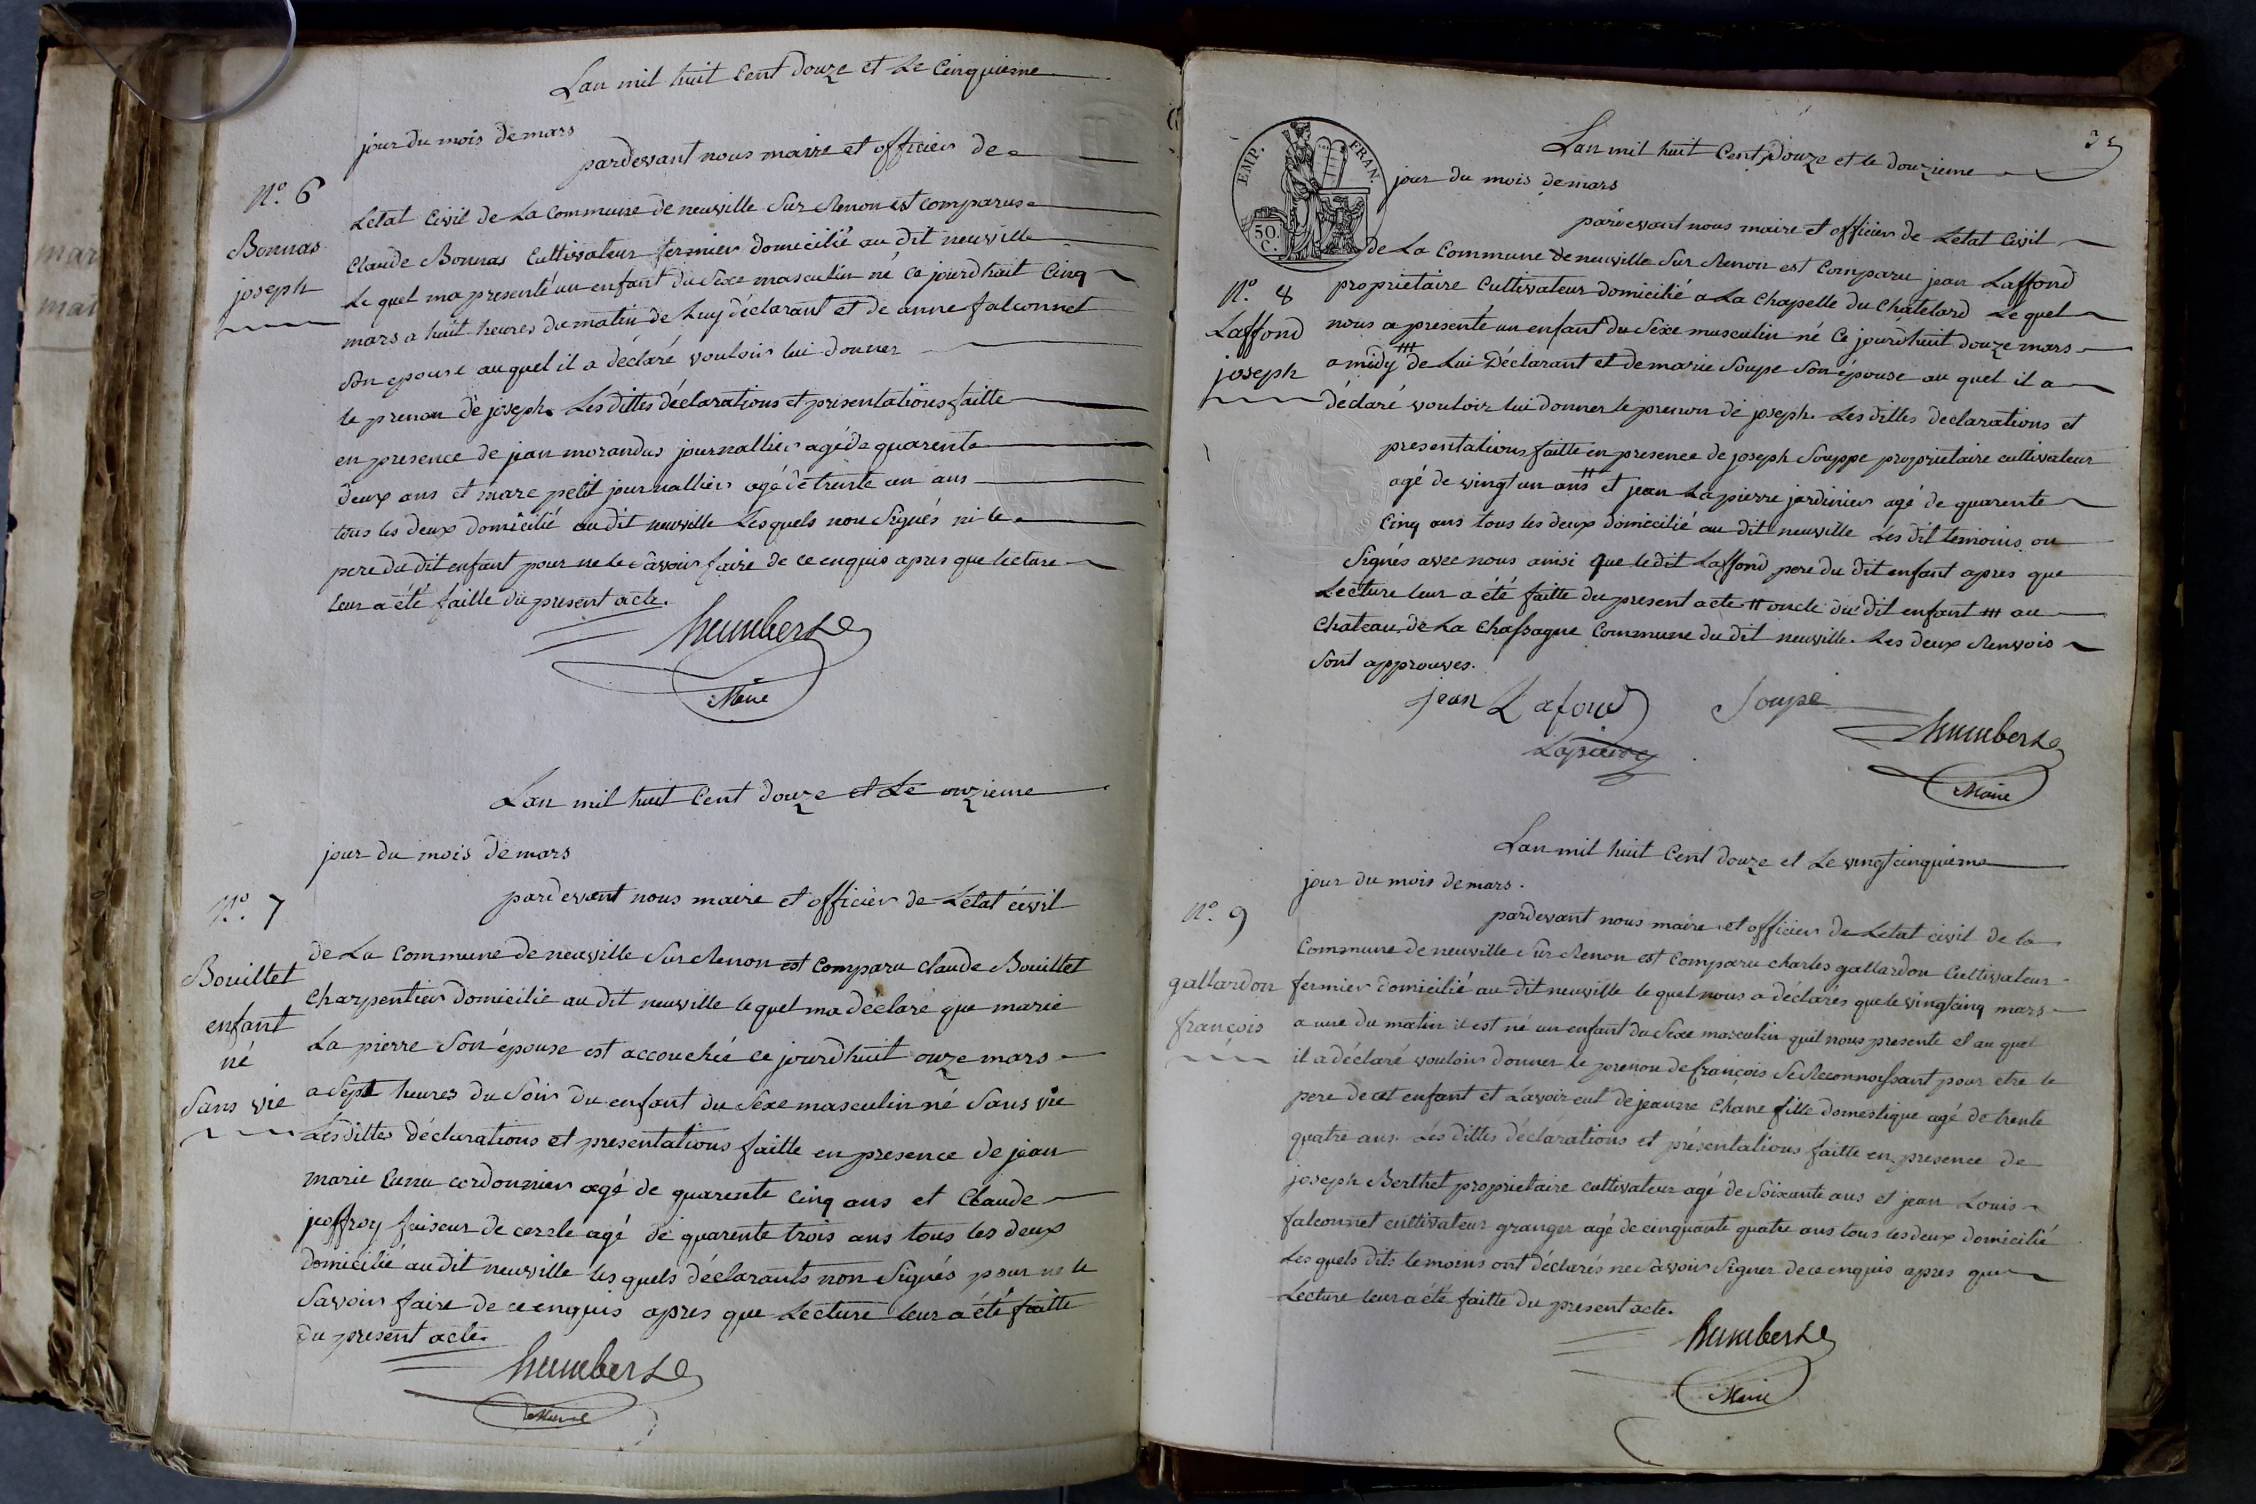 Lan mil huit Cent douze et Le Cinquieme
jour du mois de mars
pardevant nous maire et officier de
N.° 6
Letat Civil de La Commune de neuville Sur Renon est comparus
Bonnas
Claude Bonnas Cultivateur fermier domicilié au dit neuville
joseph
Le quel ma presenté un enfant du Sexe masculin né ce jourdhuit Cinq
mars a huit heures du matin de Luy déclarant et de anne falconnet
Son epouse au quel il a déclaré vouloir lui donner
le prenom de joseph. Les dittes déclarations et présentations faitte
en presence de jean morandas journallier agé de quarente
deux ans et marc petit journallier agé de trente un ans
tous les deux domicilié au dit neuville Lesquels non Signés ni le
pere du dit enfant pour ne le Savoir faire de ce enquis apres que lecture
leur a été faitte du present acte.
humbert
Maire
Lan mil huit Cent douze et Le onzieme
jour du mois de mars
pardevant nous maire et officier de Letat civil
N.° 7
de La Commune de neuville Sur Renon est Comparu Claude Bouillet
Bouillet
Charpentier domicilié au dit neuville le quel ma déclaré que marie
enfant
La pierre Son épouse est accouchée ce jourdhuit onze mars
né
a Sept heures du Soir du enfant du Sexe masculin né Sans vie
Sans vie
Les dittes déclarations et presentations faitte en presence de jean
marie Cunu cordonnier agé de quarente Cinq ans et Claude
jeoffroy faiseur de cercle agé de quarente trois ans tous les deux
domicilié au dit neuville les quels déclarants non Signés pour ne le
Savoir faire de ce enquis apres que Lecture leur a été faitte
du present acte.
humbert
Maire
35
EMP. FRAN.
50 C.
Lan mil huit Cent Douze et le douzieme
jour du mois de mars
pardevant nous maire et officier de Letat Civil
de La Commune de neuville Sur Renon est Comparu jean Laffond
N.° 8
proprietaire Cultivateur domicilié a La Chapelle du Châtelard Le quel
Laffond
nous a presenté un enfant du Sexe masculin né Ce jourdhuit douze mars
joseph
a midy ## de Lui Déclarant et de marie Soupe Son épouse au quel il a
déclaré vouloir lui donner le prenom de joseph. Les dittes declarations et
presentations faitte en presence de joseph Souppe proprietaire cultivateur
agé de vingt un ans # et jean Lapierre jardinier agé de quarente
Cinq ans tous les deux domicilié au dit neuville Les dit temoins on
Signés avec nous ainsi que le dit Laffond pere du dit enfant apres que
Lecture leur a été faitte du present acte # oncle du dit enfant ## au
Chateau de La Chassagne Commune du dit neuville. Les deux Renvois
Sont approuves.
jean Lafond
Soupe
Lapierre
humbert
Maire
Lan mil huit Cent douze et Le vingt cinquieme
jour du mois de mars.
N.° 9
pardevant nous maire et officier de Letat civil de la
Commune de neuville Sur Renon est Comparu charles gallardon Cultivateur
gallardon
fermier domicilié au dit neuville le quel nous a déclarés que le vingt cinq mars
françois
a une du matin il est né un enfant du Sexe masculin quil nous presente et au quel
il a déclaré vouloir donner le prenom de françois Se Reconnoissant pour etre le
pere de cet enfant et Lavoir eut de jeanne Chane fille domestique agé de trente
quatre ans. Les dittes déclarations et présentations faitte en presence de
joseph Berthet proprietaire cultivateur agé de Soixante ans et jean Louis
falconnet cultivateur granger agé de cinquante quatre ans tous les deux domicilié
Les quels dits temoins ont déclarés ne Savoir Signer de ce enquis apres que
Lecture leur a été faitte du present acte.
humbert
Maire